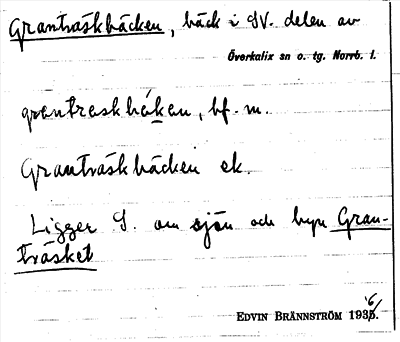 Granträskbäcken, bäck i SV. delen av
Överkalix sn o. tg. Norrb. l.
grantraskbäken, bf. m.
Granträskbäcken ek.
Ligger S. om sjön och byn Gran-
träsket
EDVIN BRÄNNSTRÖM 1936.